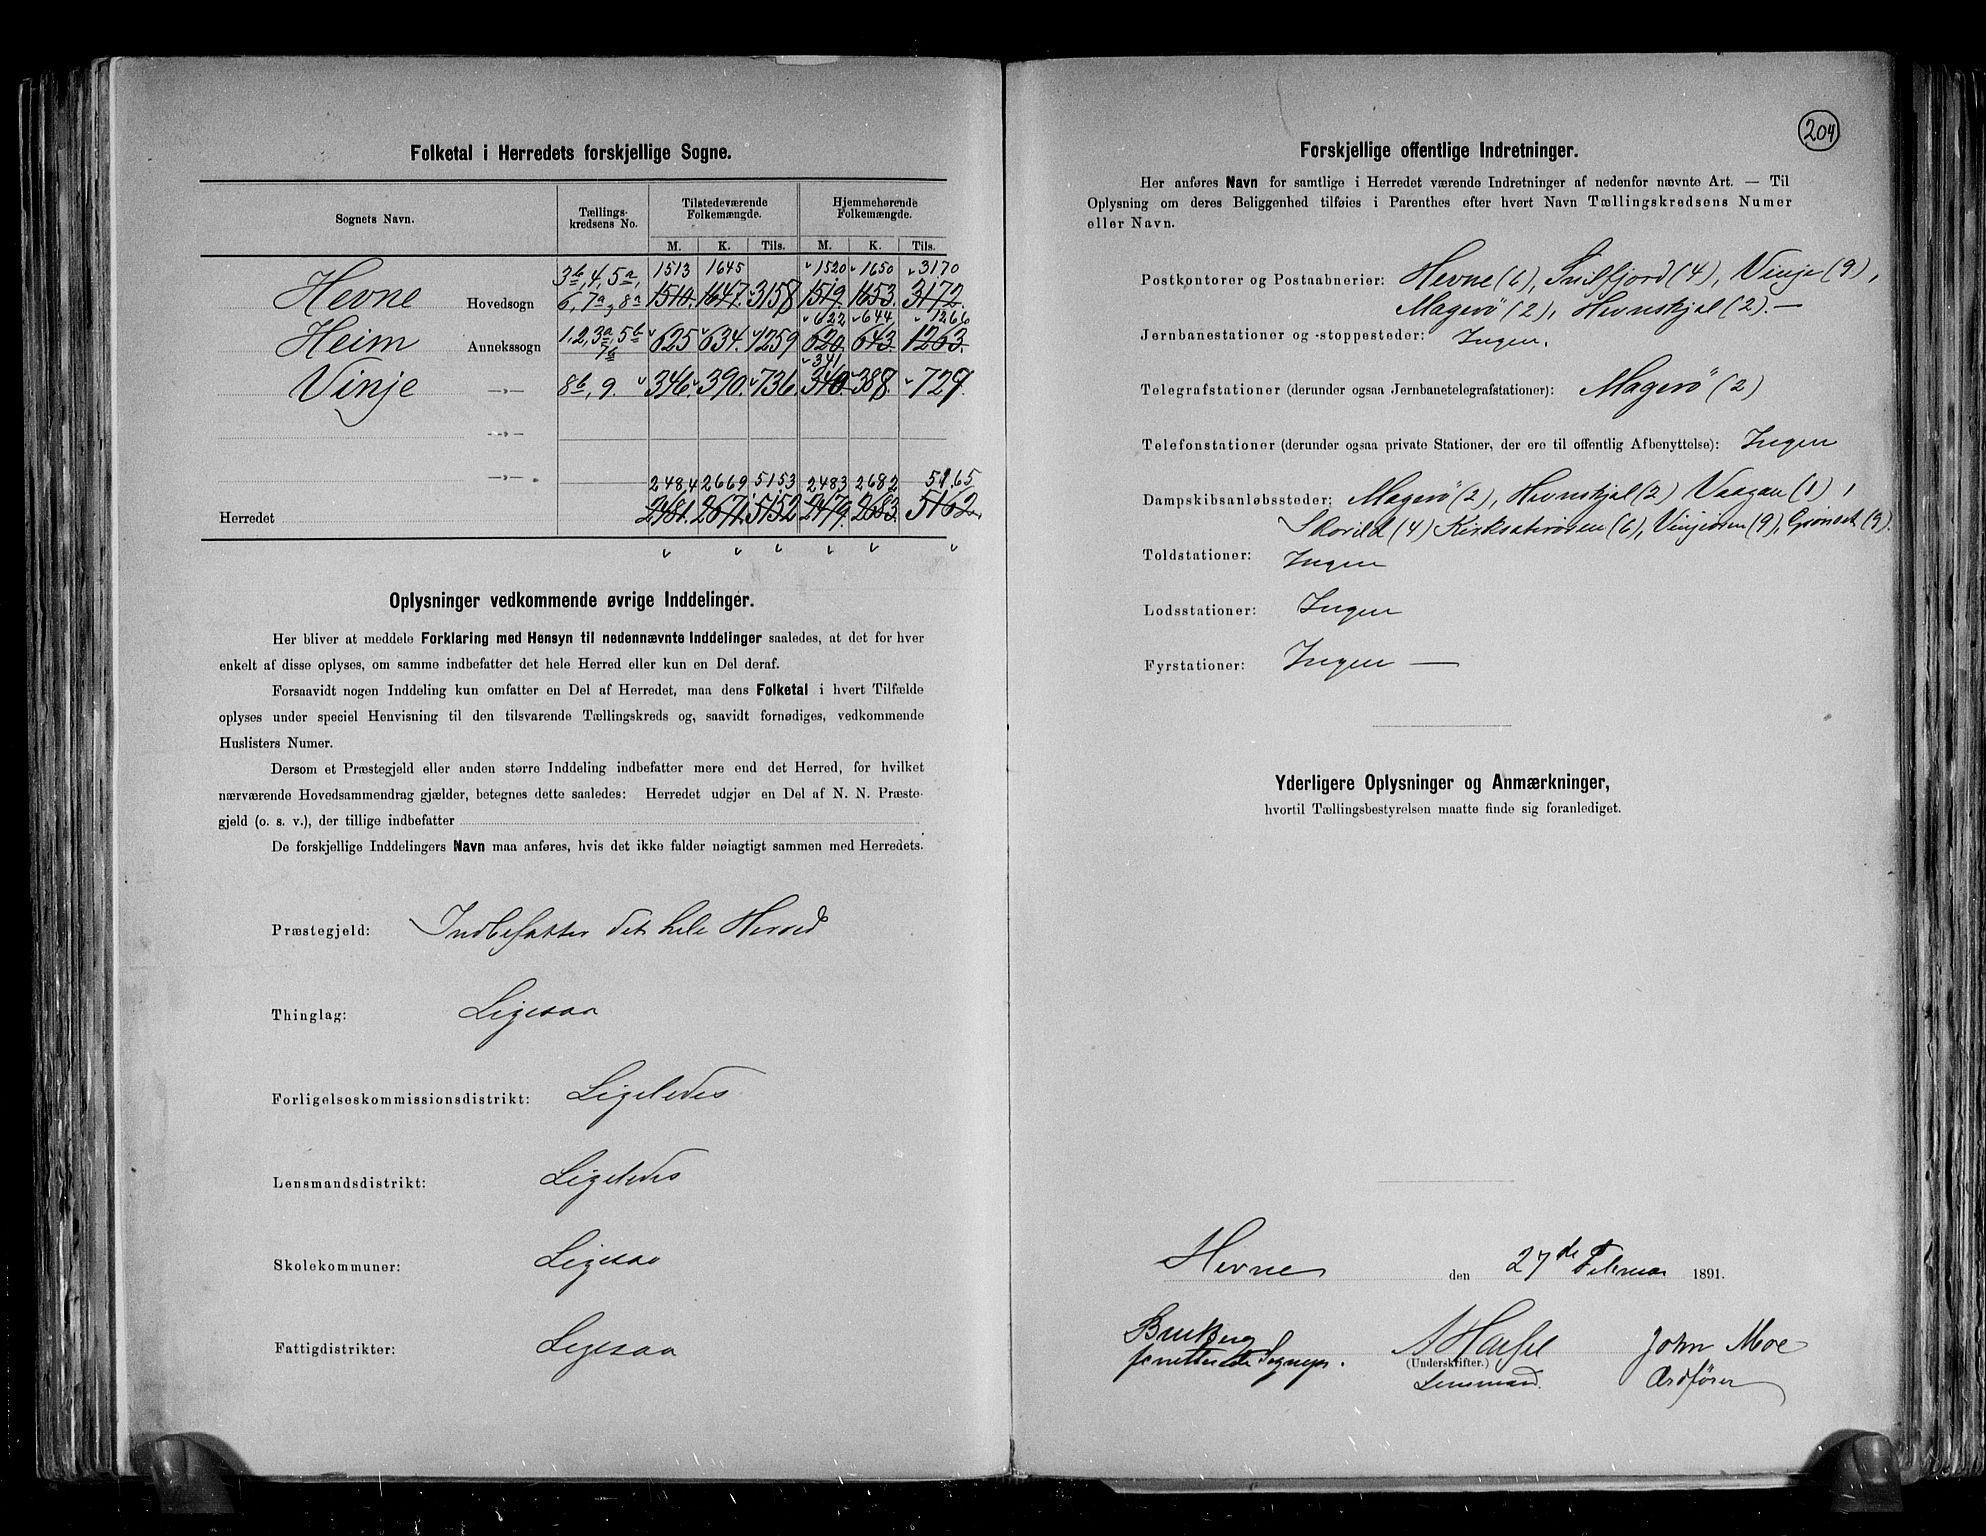 Folketal i Herredets forskjellige Sogne.
Sognets Navn. Tællings-kredsens No. Tilstedeværende Folkemængde. Hjemmehørende Folkemængde.
M. K. Tils. M. K. Tils.
3b, 4, 5a, 1513 1645 1520 1650 3170
Hevne Hovedsogn 6, 7a, 8a 1510. 1647. 3158 1519. 1653. 3172.
622 644 1266
Heim Annekssogn 1, 2, 3a, 5b 7b 625 634. 1259 620 643. 1263.
341
Vinje —„— 8b, 9. 346. 390. 736. 340. 388. 729.
—„—
—„—
2484 2669 5153 2483 2682 5165
Herredet 2481. 2671. 5152 2479. 2683. 5162.
Oplysninger vedkommende øvrige Inddelinger.
Her bliver at meddele Forklaring med Hensyn til nedennævnte Inddelinger saaledes, at det for hver
enkelt af disse oplyses, om samme indbefatter det hele Herred eller kun en Del deraf.
Forsaavidt nogen Inddeling kun omfatter en Del af Herredet, maa dens Folketal i hvert Tilfælde
oplyses under speciel Henvisning til den tilsvarende Tællingskreds og, saavidt fornødiges, vedkommende
Huslisters Numer.
Dersom et Præstegjeld eller anden større Inddeling indbefatter mere end det Herred, for hvilket
nærværende Hovedsammendrag gjælder, betegnes dette saaledes: Herredet udgjør en Del af N. N. Præste-
gjeld (o. s. v.), der tillige indbefatter
De forskjellige Inddelingers Navn maa anføres, hvis det ikke falder nøiagtigt sammen med Herredets.
Præstegjeld: Indbefatter det hele Herred
Thinglag: Ligesaa
Forligelseskommissionsdistrikt: Ligeledes
Lensmandsdistrikt: Ligeledes
Skolekommuner: Ligesaa
Fattigdistrikter: Ligesaa
204
Forskjellige offentlige Indretninger.
Her anføres Navn for samtlige i Herredet værende Indretninger af nedenfor nævnte Art. — Til
Oplysning om deres Beliggenhed tilføies i Parenthes efter hvert Navn Tællingskredsens Numer
eller Navn.
Postkontorer og Postaabnerier: Hevne (6), Snilfjord (4), Vinje (9),
Magerö (2), Hevnskjel (2). —
Jernbanestationer og -stoppesteder: Ingen.
Telegrafstationer (derunder ogsaa Jernbanetelegrafstationer): Magerö (2)
Telefonstationer (derunder ogsaa private Stationer, der ere til offentlig Afbenyttelse): Ingen
Dampskibsanløbssteder: Magerö (2), Hevnskjel (2) Vaagan (1),
(4) Kirksæterøren (6), Vinjeøren (9), Grønset (9).
Toldstationer: Ingen
Lodsstationer: Ingen
Fyrstationer: Ingen —
Yderligere Oplysninger og Anmærkninger,
hvortil Tællingsbestyrelsen maatte finde sig foranlediget.
Hevne den 27de Februar 1891.
John Moe
(Underskrifter.)
Lensmand. Ordfører